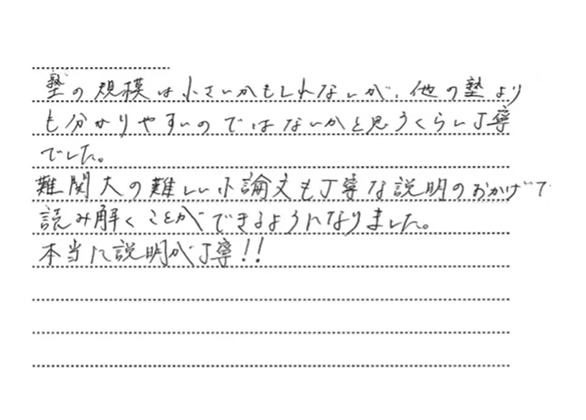 塾の規模は小さいかもしれないが、他の塾より
も分かりやすいのではないかと思うくらい丁寧
でした。
難関大の難しい小論文も丁寧な説明のおかげで
読み解くことができるようになりました。
本当に説明が丁寧!!